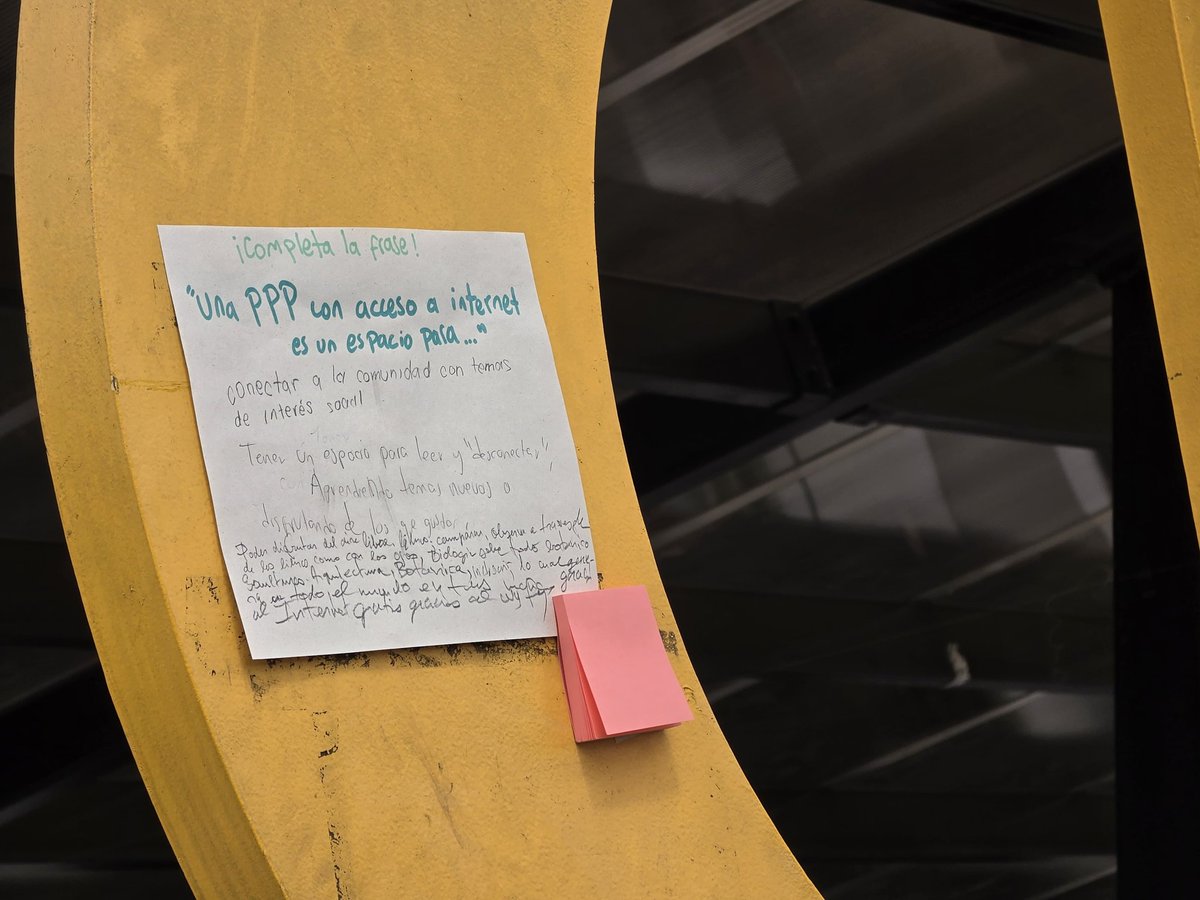 ¡Completa la frase!
"Una PPP con acceso a internet
es un espacio para..."
conectar a la comunidad con temas
de interés social
Tener un espacio para leer y "desconectar",
Aprendiendo temas nuevos o
disfrutando de los que gustan
Poder disfrutar del aire libre, observar a traves de
de los libros como con los ojos, Biología sobre todo botánico
Arquitectura, Botánica, lo cual
todo el mundo en
al Internet gratis gracias al